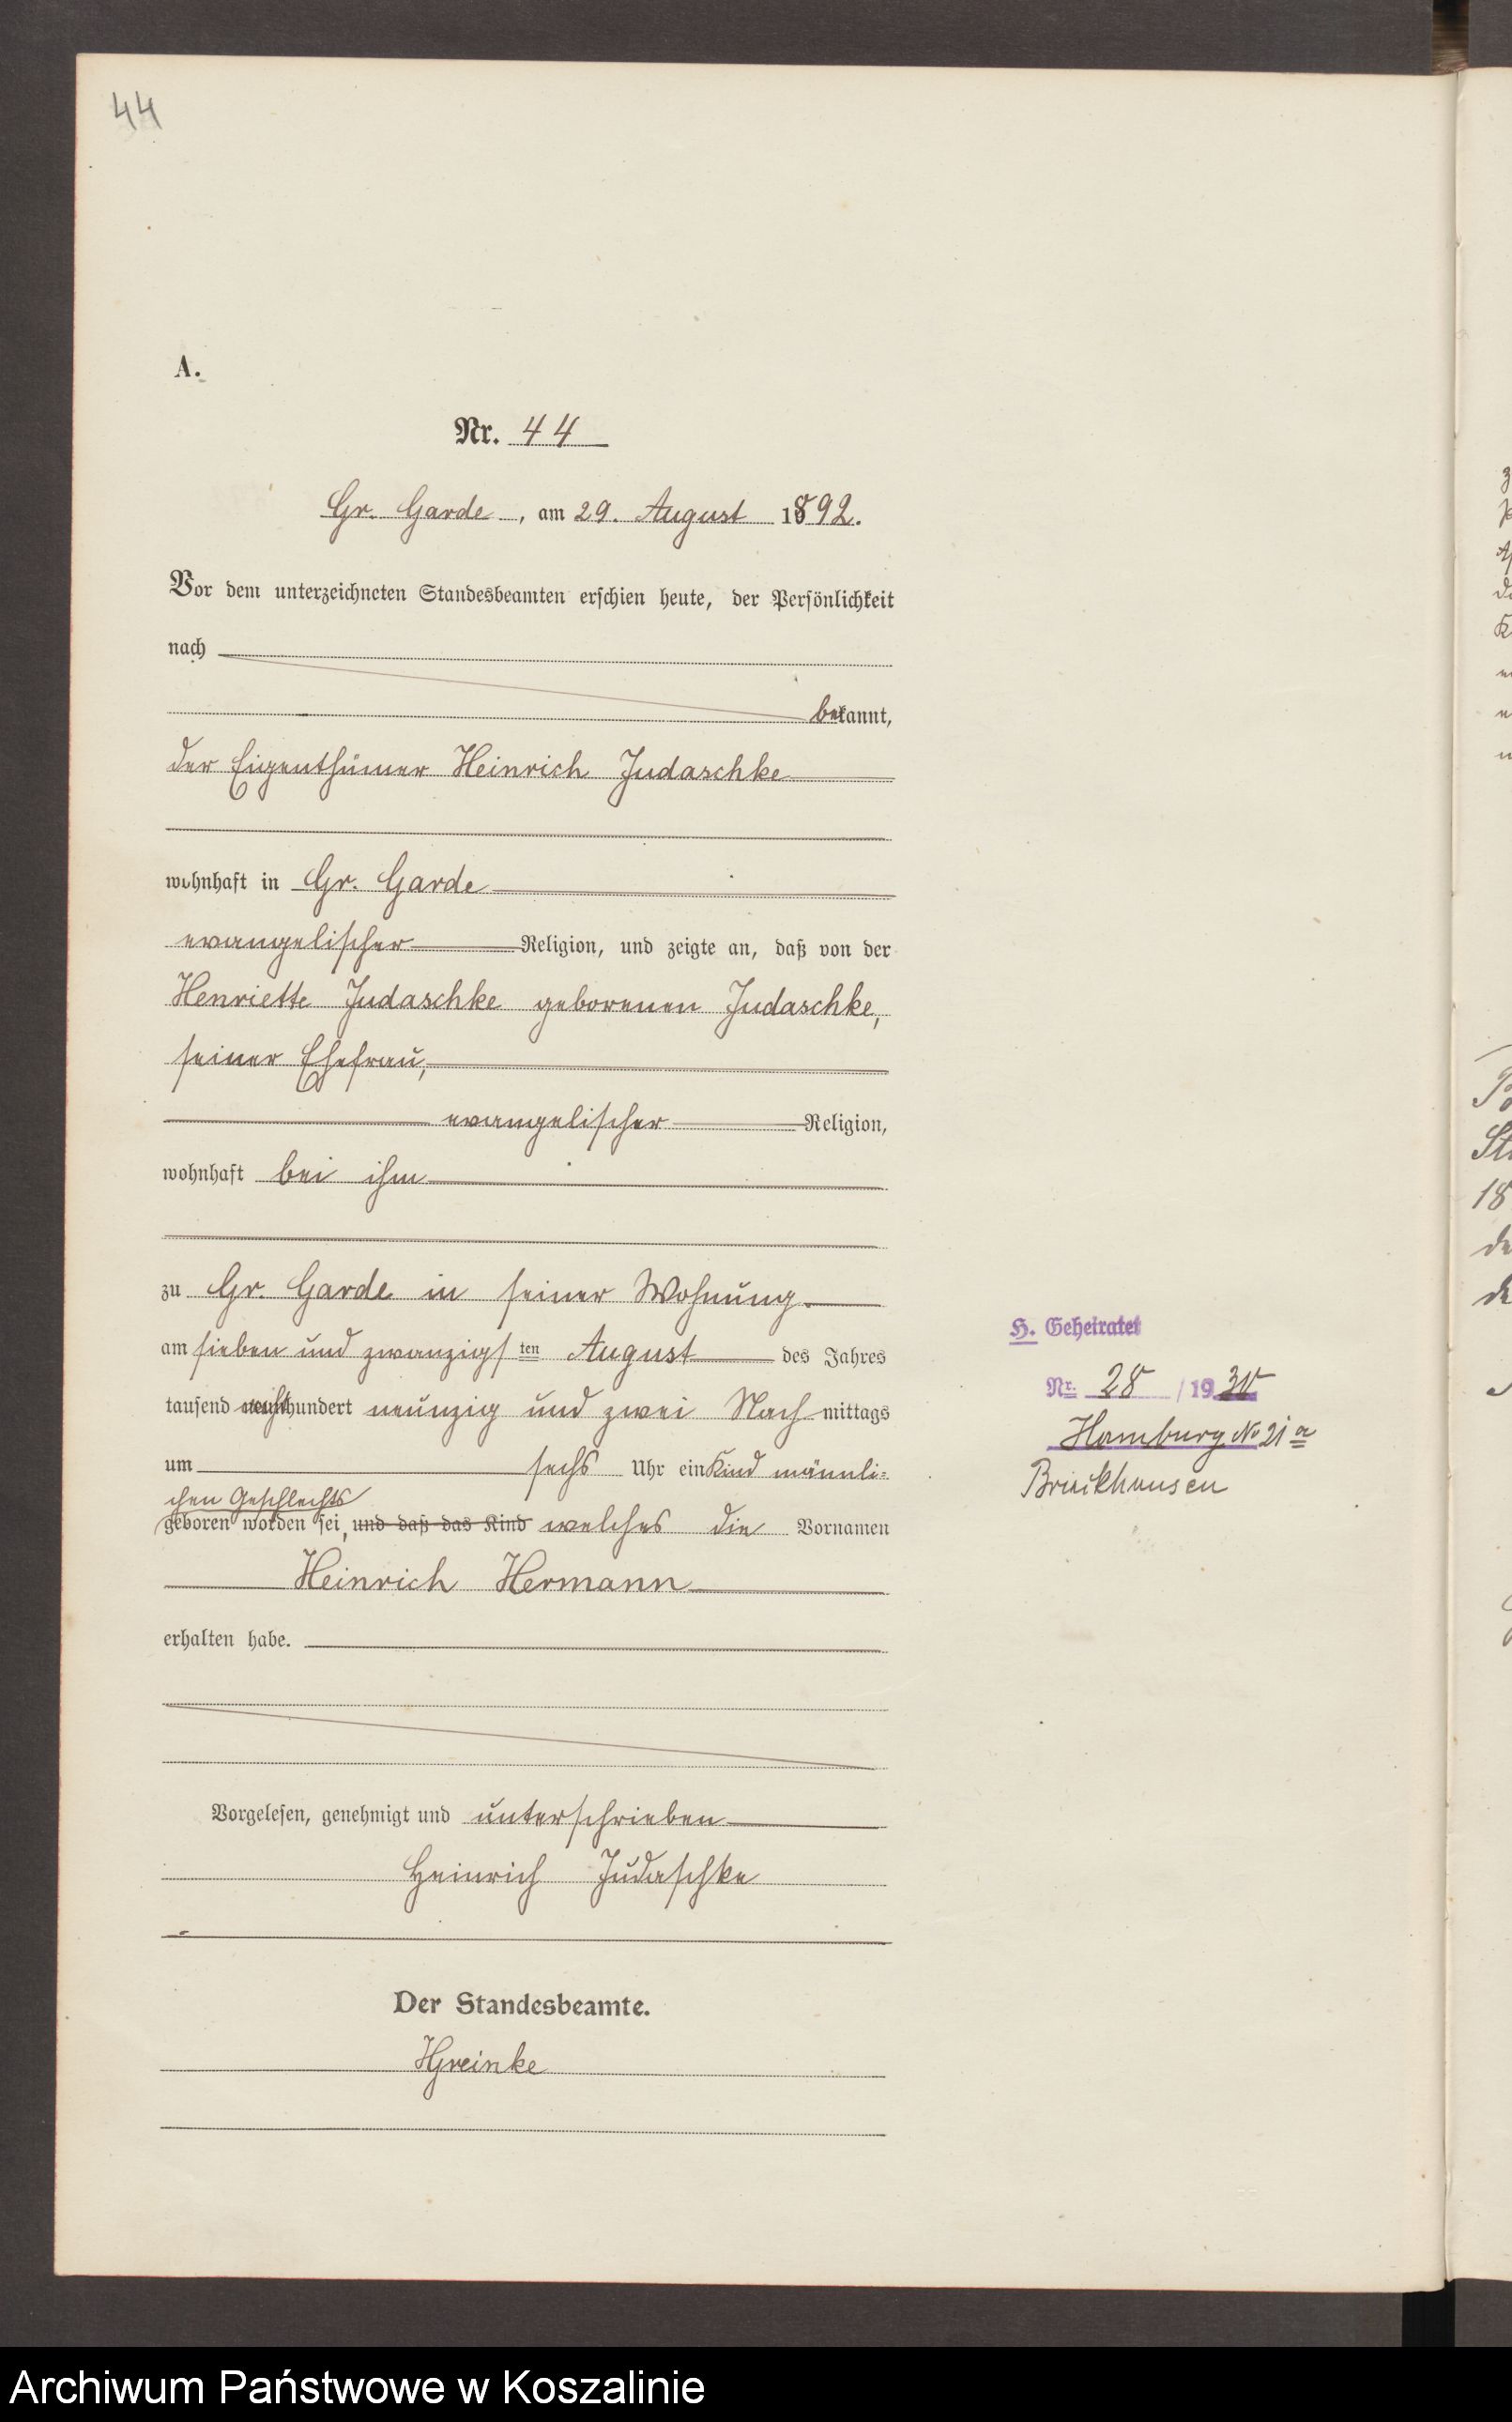 44
A.
Nr. 44
Gr. Garde, am 29. August 1892.
Vor dem unterzeichneten Standesbeamten erschien heute, der Persönlichkeit
nach
bekannt,
der Eigenthümer Heinrich Judaschke
wohnhaft in Gr. Garde
evangelischer Religion, und zeigte an, daß von der
Henriette Judaschke geborenen Judaschke,
seiner Ehefrau,
evangelischer Religion,
wohnhaft bei ihm
zu Gr. Garde in seiner Wohnung
am sieben und zwanzigsten August des Jahres
tausend achthundert neunzig und zwei Nachmittags
um sechs Uhr ein Kind männli=
chen Geschlechts
geboren worden sei, und daß das Kind welches die Vornamen
Heinrich Hermann
erhalten habe.
Vorgelesen, genehmigt und unterschrieben
Heinrich Judaschke
Der Standesbeamte.
H. Geheiratet
Nr. 28 /19 30
Hamburg No 21a
Archiwum Państwowe w Koszalinie